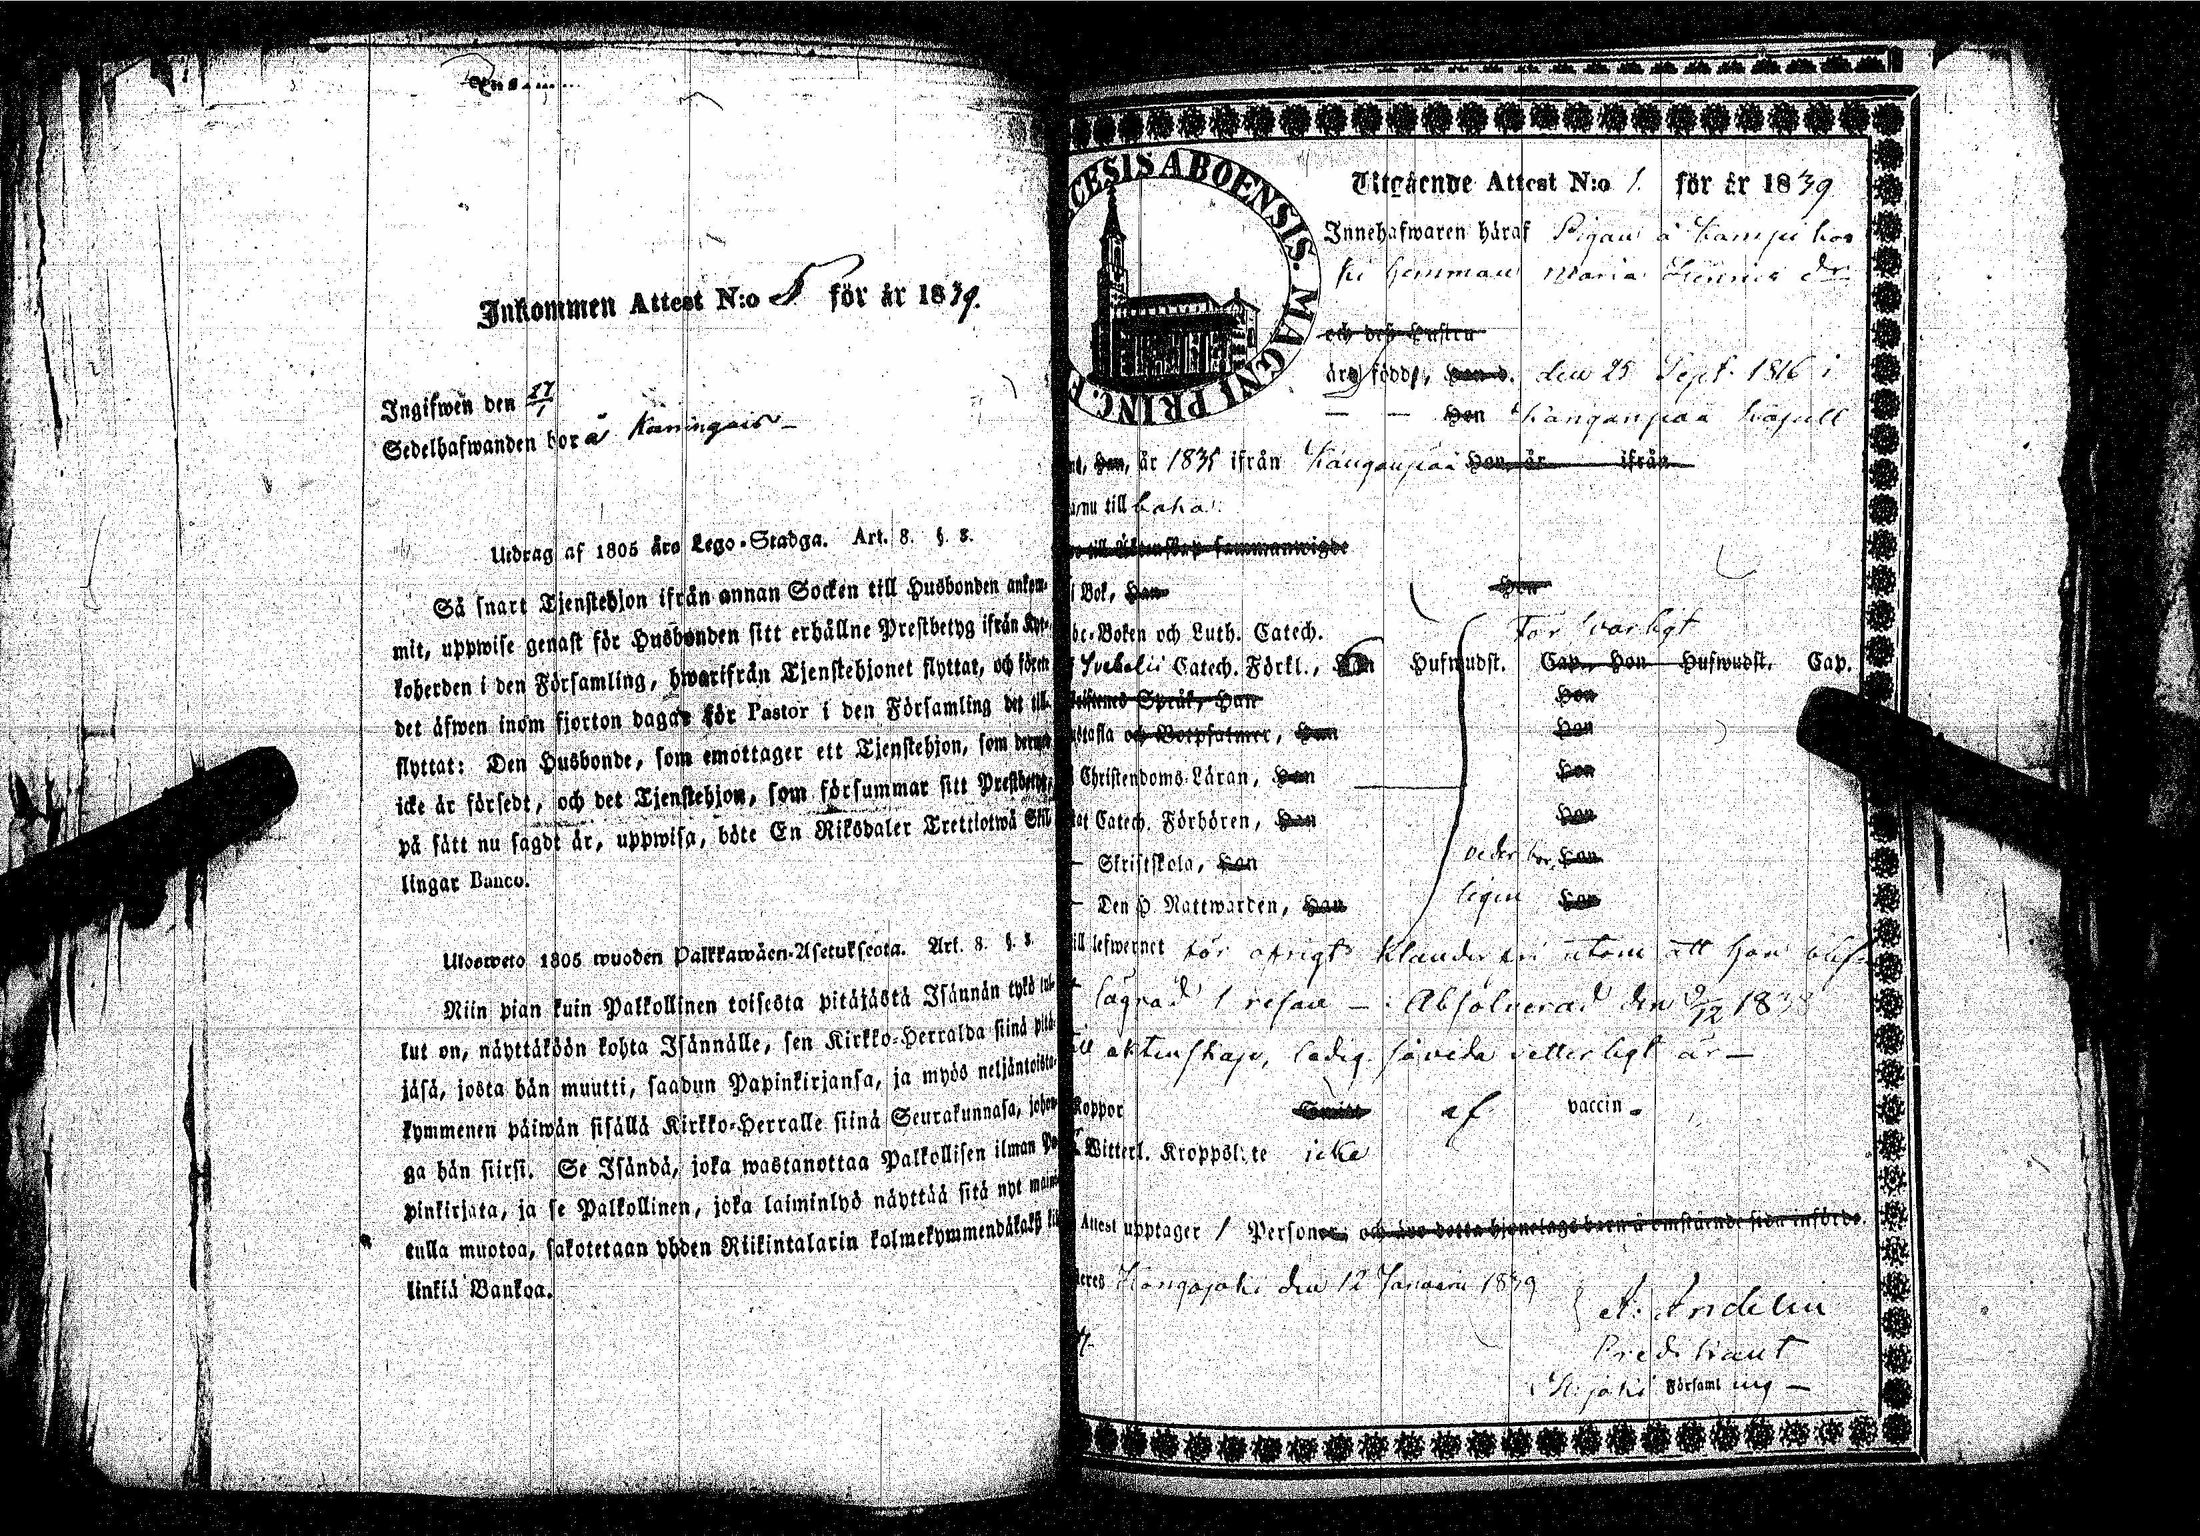 Inkommen Attest N:o 5 för år 1839.
Ingifwen den 27/1
Sedelhafwanden bor å Kaningais
Utdrag af 1805 års Lego-Stadga. Art. 8. §. 8.
Så snart Tjenstehjon ifrån annan Socken till Husbonden ankom-
mit, uppwise genast för Husbonden sitt erhållne Prestbetyg ifrån Kyr-
koherden i den Församling, hwarifrån Tjenstehjonet flyttat, och förete
det äfwen inom fjorton dagar för Pastor i den Församling det till-
flyttat: Den Husbonde, som emottager ett Tjenstehjon, som dermed
icke är försedt, och det Tjenstehjon, som försummar sitt Prestbetyg,
på sätt nu sagdt är, uppwisa, böte En Riksdaler Trettiotwå Skil-
lingar Banco.
Ulosweto 1805 wuoden Palkkawäen-Asetuksesta. Art. 8. §. 8.
Niin pian kuin Palkollinen toisesta pitäjästä Isännän tykö tul-
lut on, näyttäköön kohta Isännälle, sen Kirkko-Herralda siinä pitä-
jäsä, josta hän muutti, saadun Papinkirjansa, ja myös neljäntoista-
kymmenen päiwän sisällä Kirkko-Herralle siinä Seurakunnasa, johon-
ga hän siirsi. Se Isändä, joka wastanottaa Palkollisen ilman Pa-
pinkirjata, ja se Palkollinen, joka laiminlyö näyttää sitä nyt maini-
tulla muotoa, sakotetaan yhden Riikintalarin kolmekymmendäkaksi kil-
linkiä Bankoa.
CESIS ABOENSIS. MAGNI PRINC. F
Utgående Attest N:o 1. för år 1839
Innehafwaren häraf Pigan å Kampi kos
ki hemman Maria Dr
och deß Hustru
äro född, han d. den 25 Sept. 1816 i
— — Hon Kanganpää Kapell
han, år 1835 ifrån Kanganpää Hon, år ifrån
nu till baka
till Äktenskap sammanwigde
i Bok, Han Hon
Boken och Luth. Catech. För swarligt
Svebelii Catech. Förkl., Han Hufwudst. Cap. Hon Hufwudst. Cap.
Skriftenes Språk, Han Hon
Hustafla och Botpsalmer, Han Hon
Christendoms-Läran, Han Hon
Catech. Förhören, Han Hon
— Skriftskola, Han veder bör Hon
— Den H. Nattwarden, Han ligen Hon
till lefwernet för öfrigt klander fri utom att hon blif
lägrad 1 resan — : Absolverad den 9/12 1838
till äktenskap, ledig såvida vetterligt är —
Koppor Smitt af vaccin.
Witterl. Kroppslyte icke
Attest upptager 1 Personer; och äro detta hjonelags barn å omstående sida införde.
Hongojoki den 12 Januarii 1839
A: Andelin
Predikant
H:joki Församling —